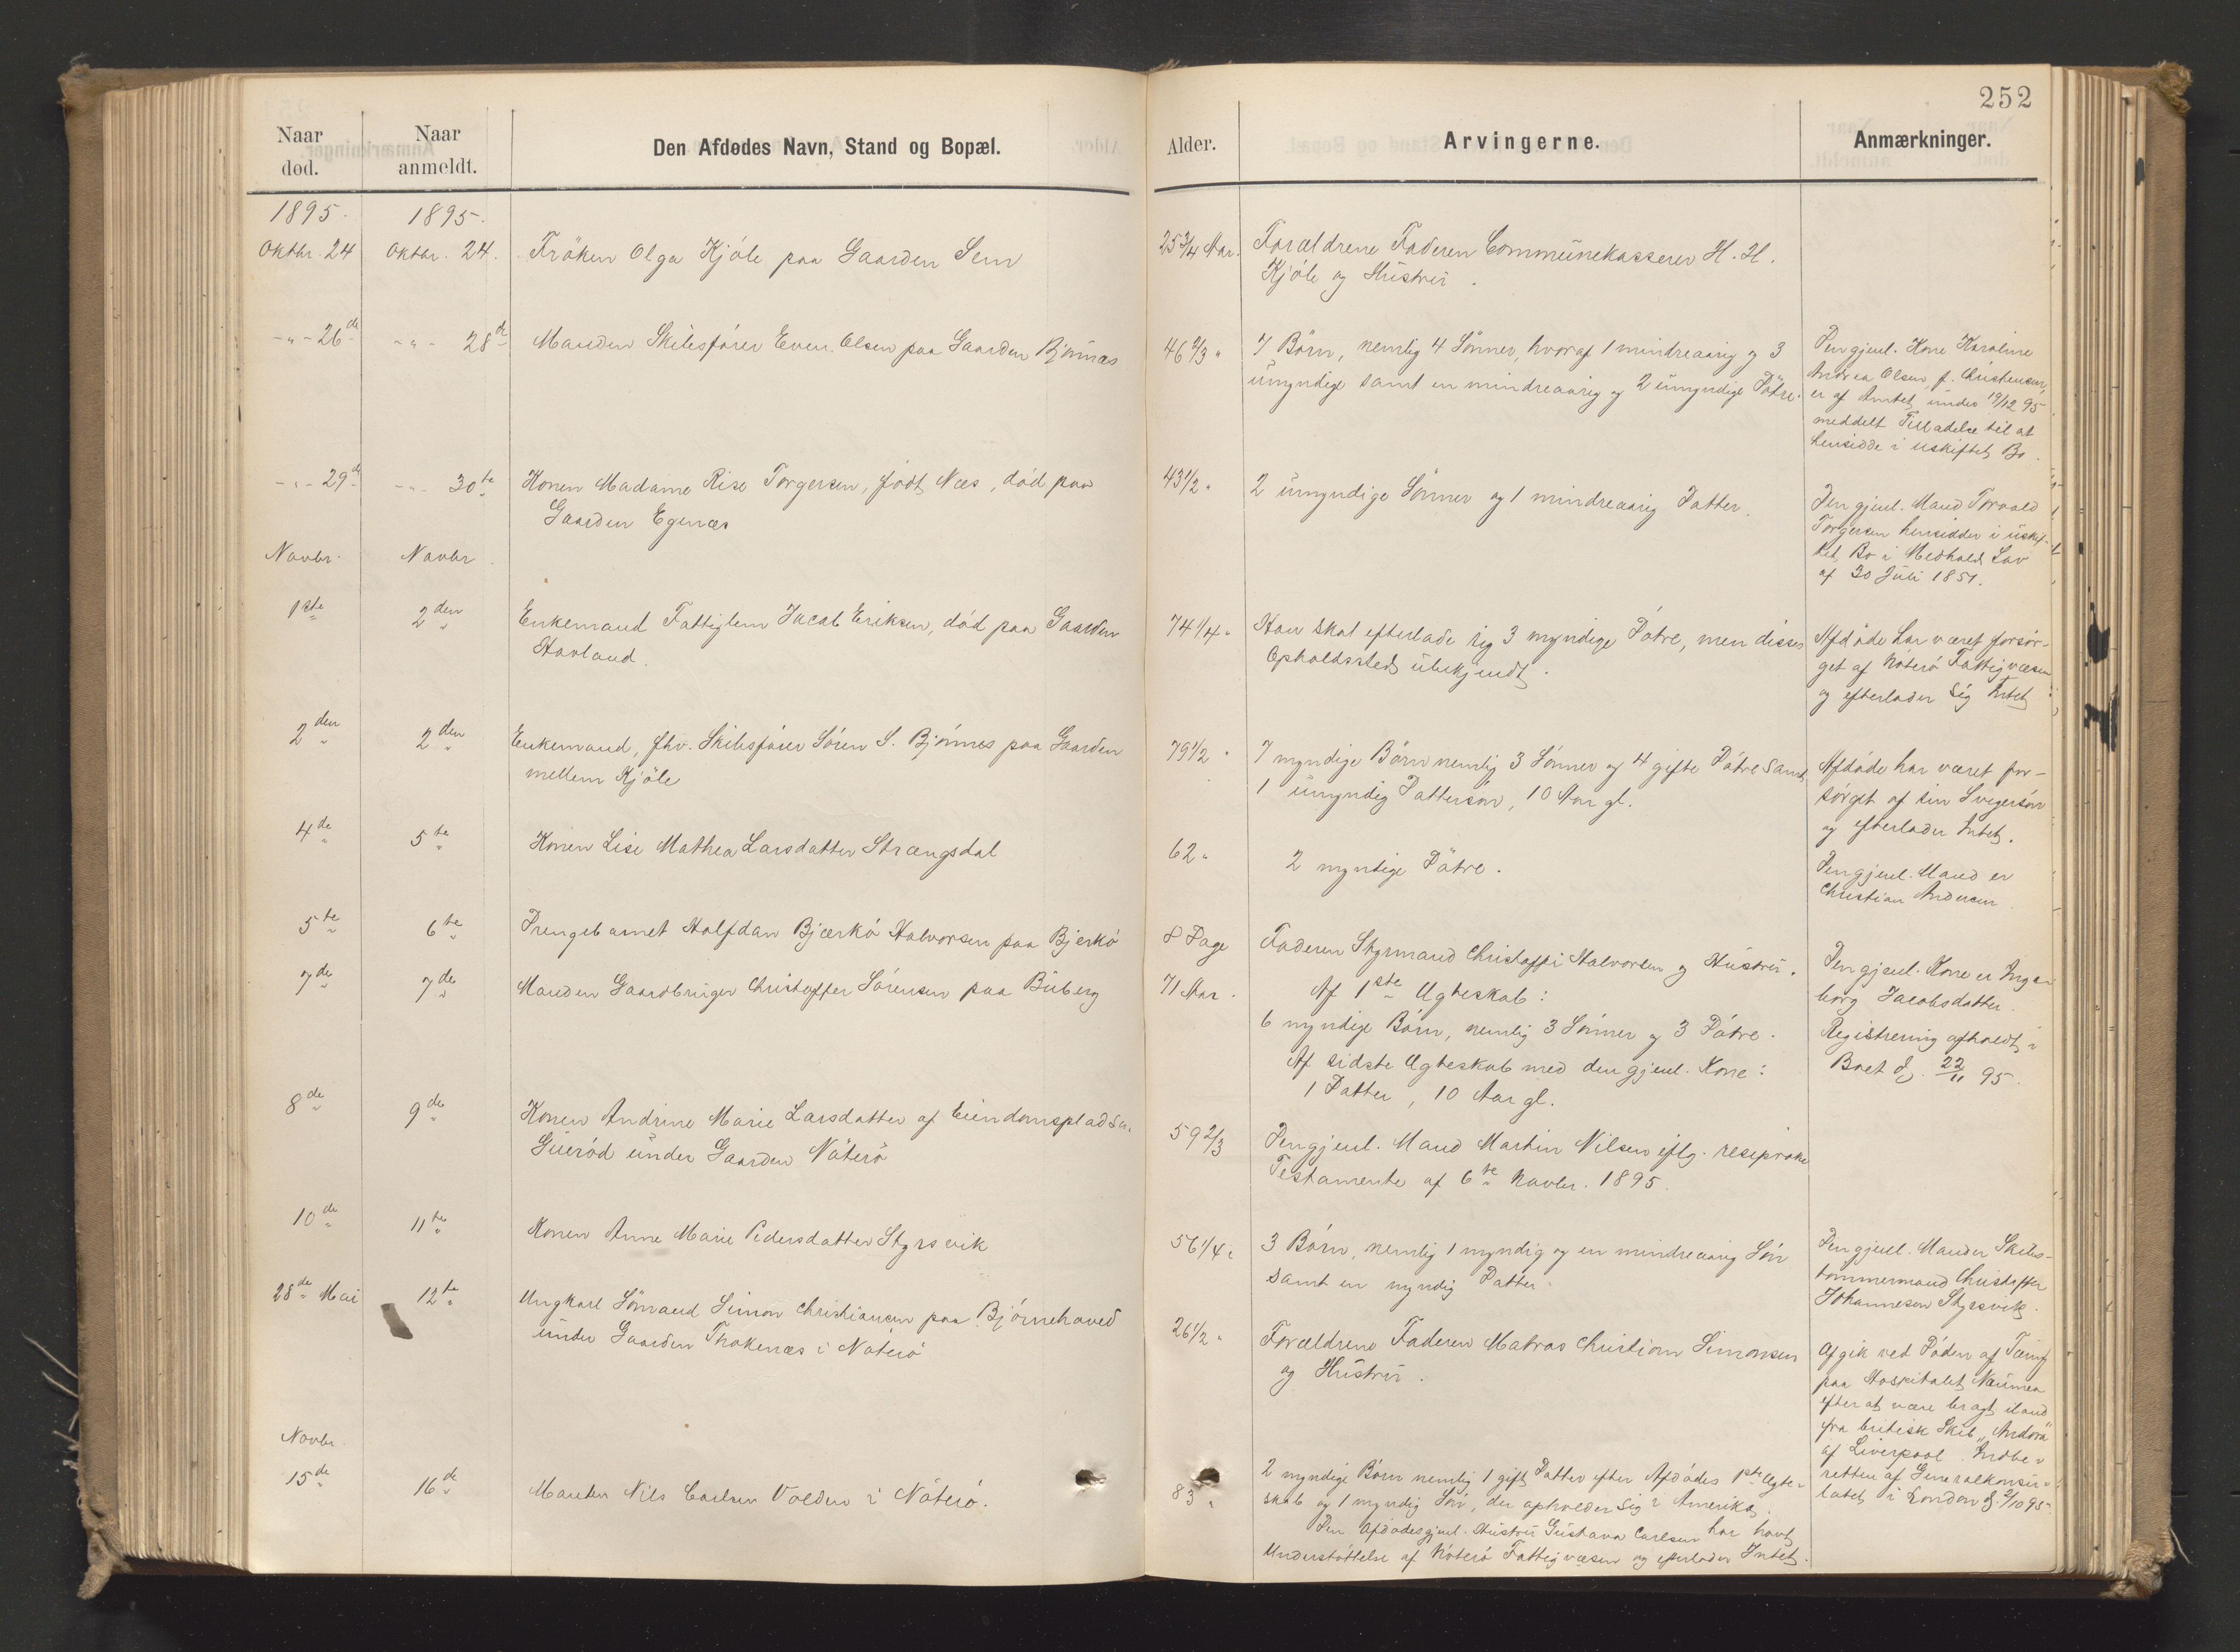 252
Naar død.
Naar anmeldt.
Den Afdødes Navn, Stand og Bopæl.
Alder.
Arvingerne.
Anmærkninger.
1895. 1895.
Oktbr. 24 Oktbr. 24. Fröken Olga Kjöle paa Gaarden Sem
25 3/4 Aar. Forældrene Faderen Communekasserer H. H.
Kjöle og Hustru.
-"- 26de -"- 28de Manden Skibsfører Even Olsen paa Gaarden Bjönnæs
46 2/3 " 7 Börn, nemlig 4 Sönner, hvoraf 1 mindreaarig og 3
umyndige samt en mindreaarig og 2 umyndige Dötre.
Den gjenl. Kone Karoline
Andrea Olsen, f. Christensen,
er af Amtet under 19/12 95
meddelt Tilladelse til at
hensidde i uskiftet Bo.
-"- 29de -"- 30te Konen Madame Rise Torgersen, født Næs, død paa
Gaarden Egenæs
43 1/2 " 2 umyndige Sönner og 1 mindreaarig Datter.
Den gjenl. Mand Torvald
Torgersen hensidder i uskif-
tet Bo i Medhold Lov
af 30 Juli 1851.
Novbr. Novbr.
1ste 2den Enkemand Fattiglem Jacob Eriksen, död paa Gaarden
Havland.
74 1/4 " Han skal efterlade sig 3 myndige Dötre, men disses
Opholdssted ubekjendt.
Afdöde har været forsör-
get af Nöterö Fattigvæsen
og efterlader sig Intet
2den 2den Enkemand, fhv. Skibsfører Sören S. Bjönnes paa Gaarden
mellem Kjöle
79 1/2 " 7 myndige Börn nemlig 3 Sönner og 4 gifte Dötre samt
1 umyndig Dattersön, 10 Aar gl.
Afdöde har været for-
sörget af sin Svigersön
og efterlader Intet.
4de 5te Konen Lise Mathea Larsdatter Strængsdal
62 " 2 myndige Dötre.
Den gjenl. Mand er
Christian Andersen
5te 6te Drengebarnet Halfdan Bjærkö Halvorsen paa Bjerkö
8 Dage Faderen Styrmand Christoffer Halvorsen og Hustru.
7de 7de Manden Gaardbruger Christoffer Sörensen paa Buberg
71 Aar. Af 1ste Ægteskab:
6 myndige Börn, nemlig 3 Sönner og 3 Dötre.
Af sidste Ægteskab med den gjenl. Kone:
1 Datter, 10 Aar gl.
Den gjenl. Kone er Inge-
borg Jacobsdatter.
Registrering afholdt i
Boet d. 22/11 95.
8de 9de Konen Andrine Marie Larsdatter af Eiendomspladsen
Gueröd under Gaarden Nöterö
59 2/3 Den gjenl. Mand Martin Nilsen iflg. resiproke
Testamente af 6te Novbr. 1895.
10de 11te Konen Anne Marie Pedersdatter Styrsvik
56 1/4 " 3 Börn, nemlig 1 myndig og en mindreaarig Sön
samt en myndig Datter.
Den gjenl. Mand er Skibs-
tømmermand Christoffer
Johannesen Styrsvik.
28de Mai 12te Ungkarl Sömand Simon Christiansen paa Bjönnehoved
under Gaarden Thokenæs i Nöterö
26 1/2 " Forældrene Faderen Matros Christian Simonsen
og Hustru.
Afgik ved Döden af Tæring
paa Hospitalet Noumea
efter at være bragt iland
fra britisk Skib "Andora"
af Liverpool. Indbe-
retten af Generalkonsu-
latet i London d. 2/10 95.
Novbr.
15de 16de Manden Nils Carlsen Volden i Nöterö.
83 " 2 myndige Börn nemlig 1 gift Datter efter Afdödes 1ste Ægte-
skab og 1 myndig Sön, der opholder sig i Amerika.
Den Afdödes gjenl. Hustru Gustava Carlsen har havt
Understöttelse af Nöterö Fattigvæsen og efterlader Intet.